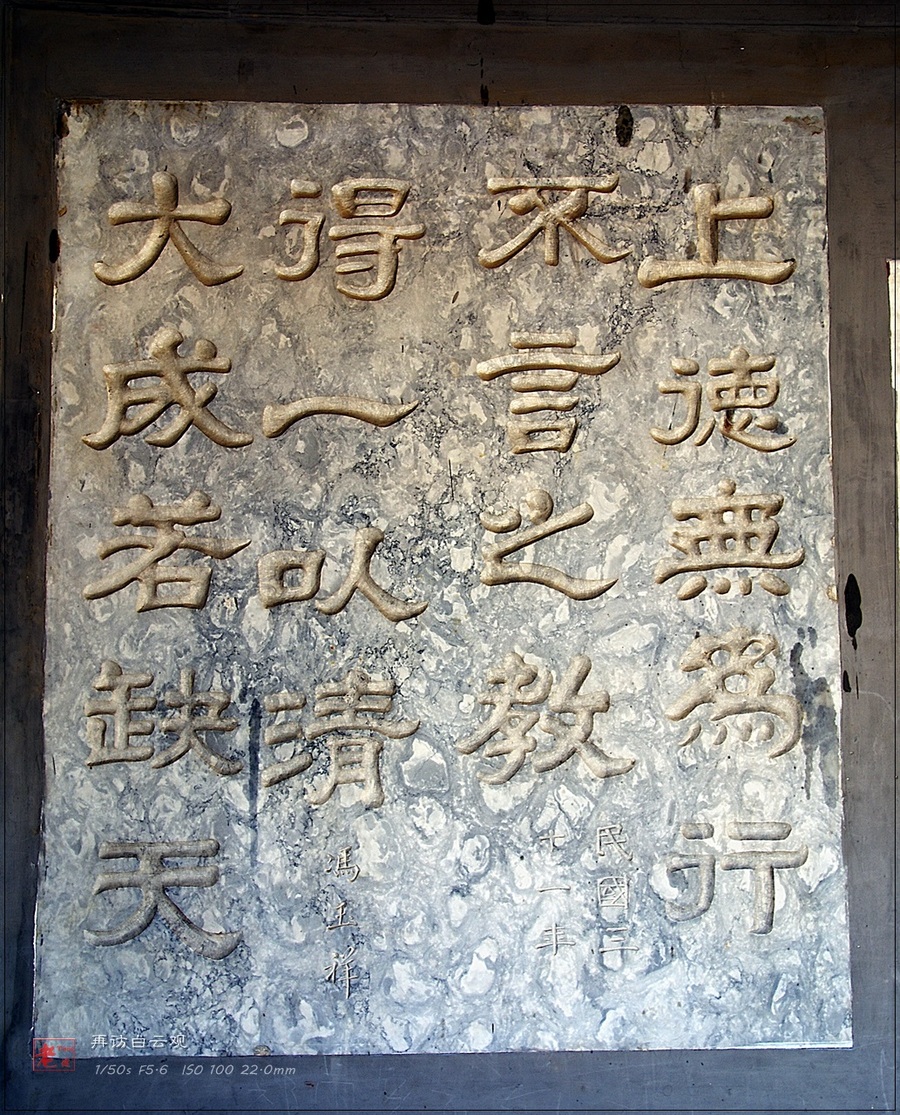 上德無爲行
不言之教
民國三
十一年
得一以清
馮玉祥
大成若缺天
再访白云观
1/50s F5·6 ISO 100 22·0mm